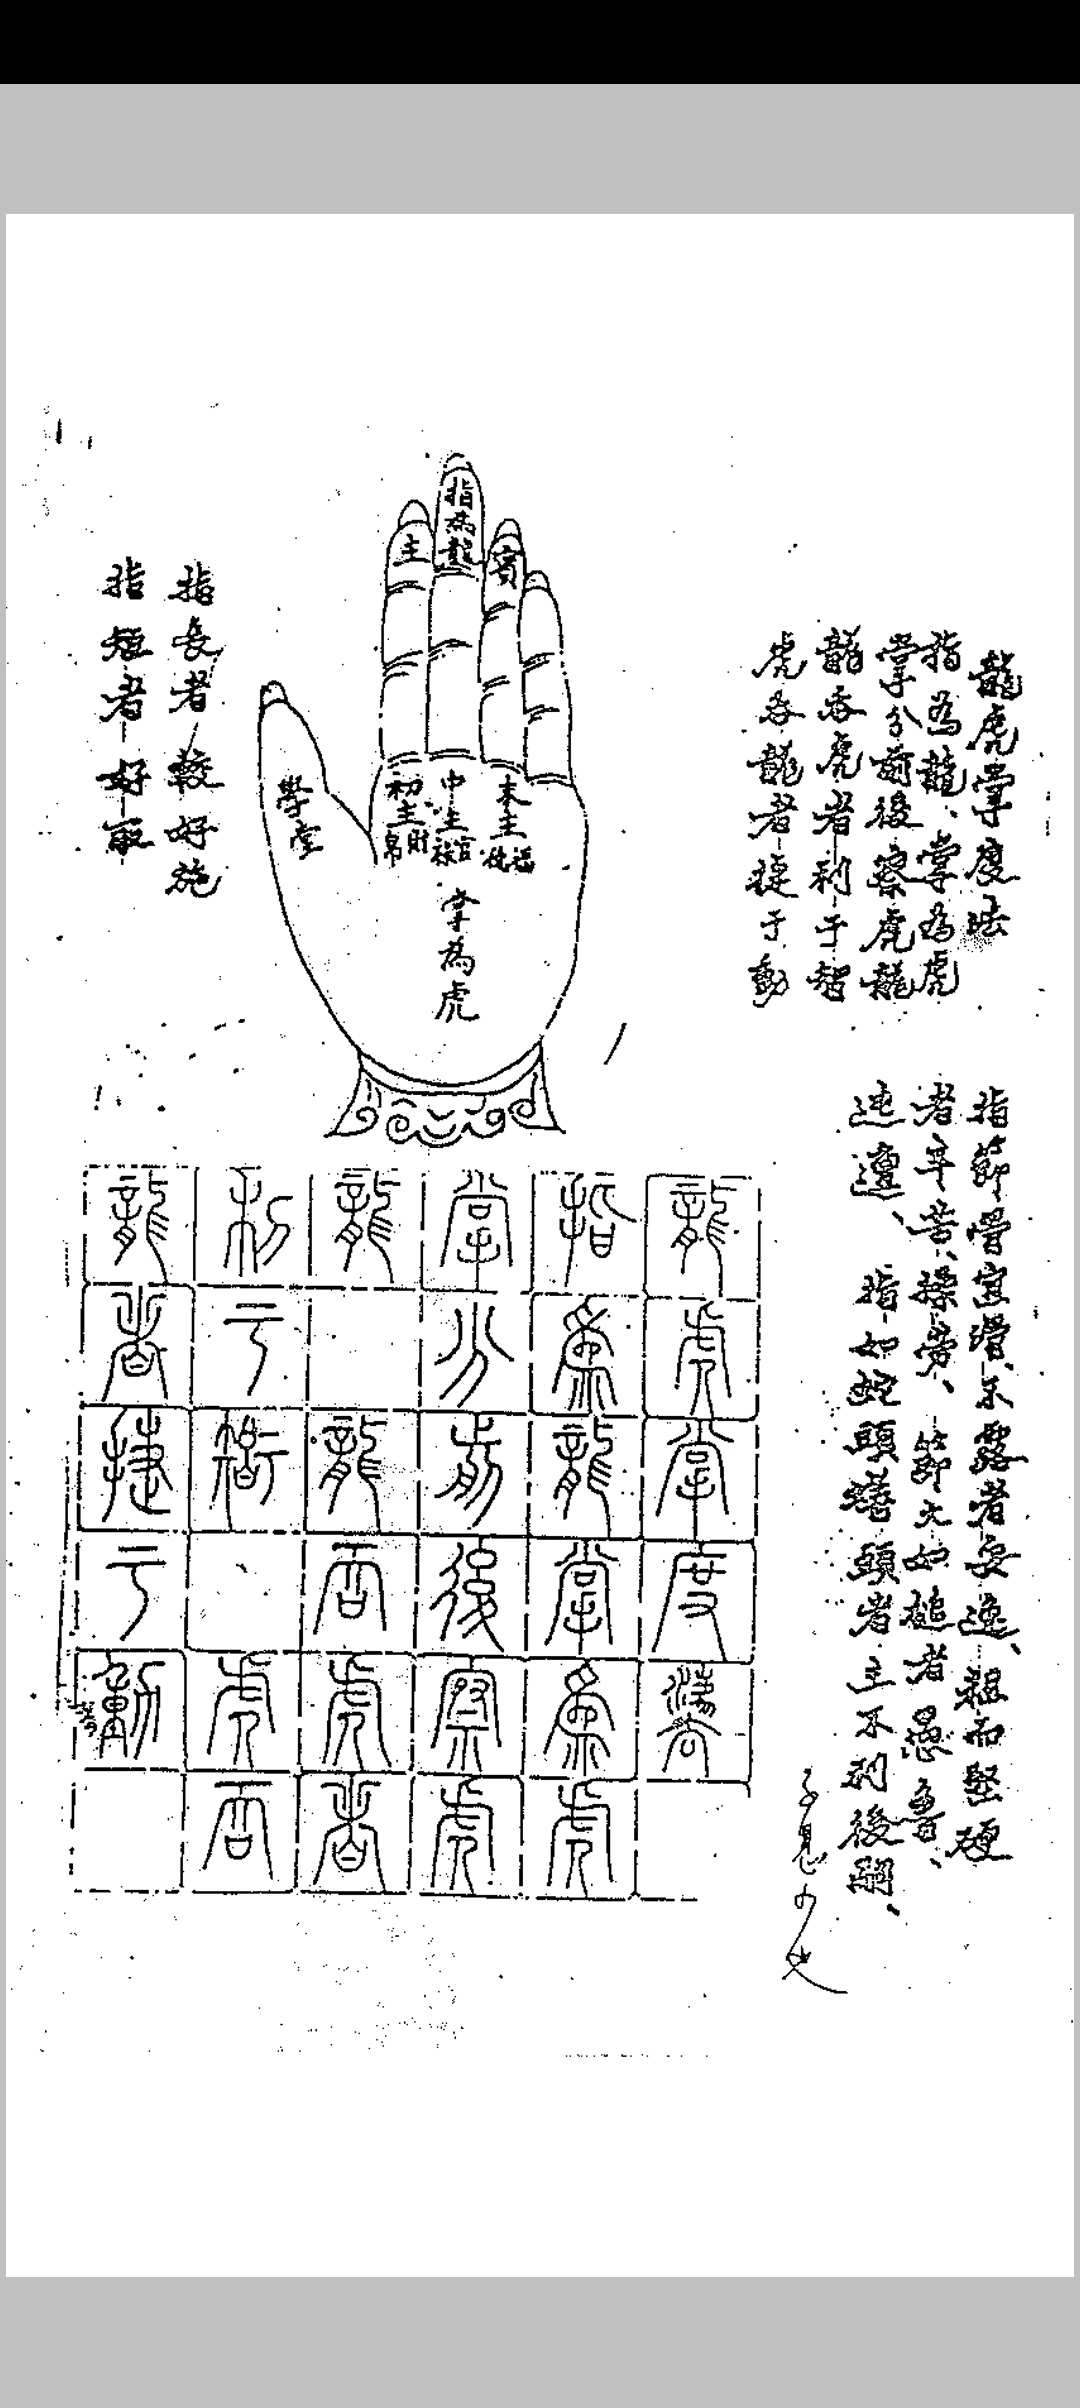 龍虎掌度法
指為龍、掌為虎
掌分前後察虎龍
龍吞虎者利于智
虎吞龍者捷于動
指節骨宜滑、不露者安逸、粗而堅硬
者辛苦、操勞、節大如槌者愚魯、
迍邅、指如蛇頭蟮頭者主不利後嗣、
主
指為龍
賓
學堂
初主財帛
中主官祿
末主福德
掌為虎
指長者較好施
指短者好取
龍虎掌度灋
指為龍掌為虎
掌分前後察虎
龍 龍吞虎者
利于智 虎吞
龍者捷于動